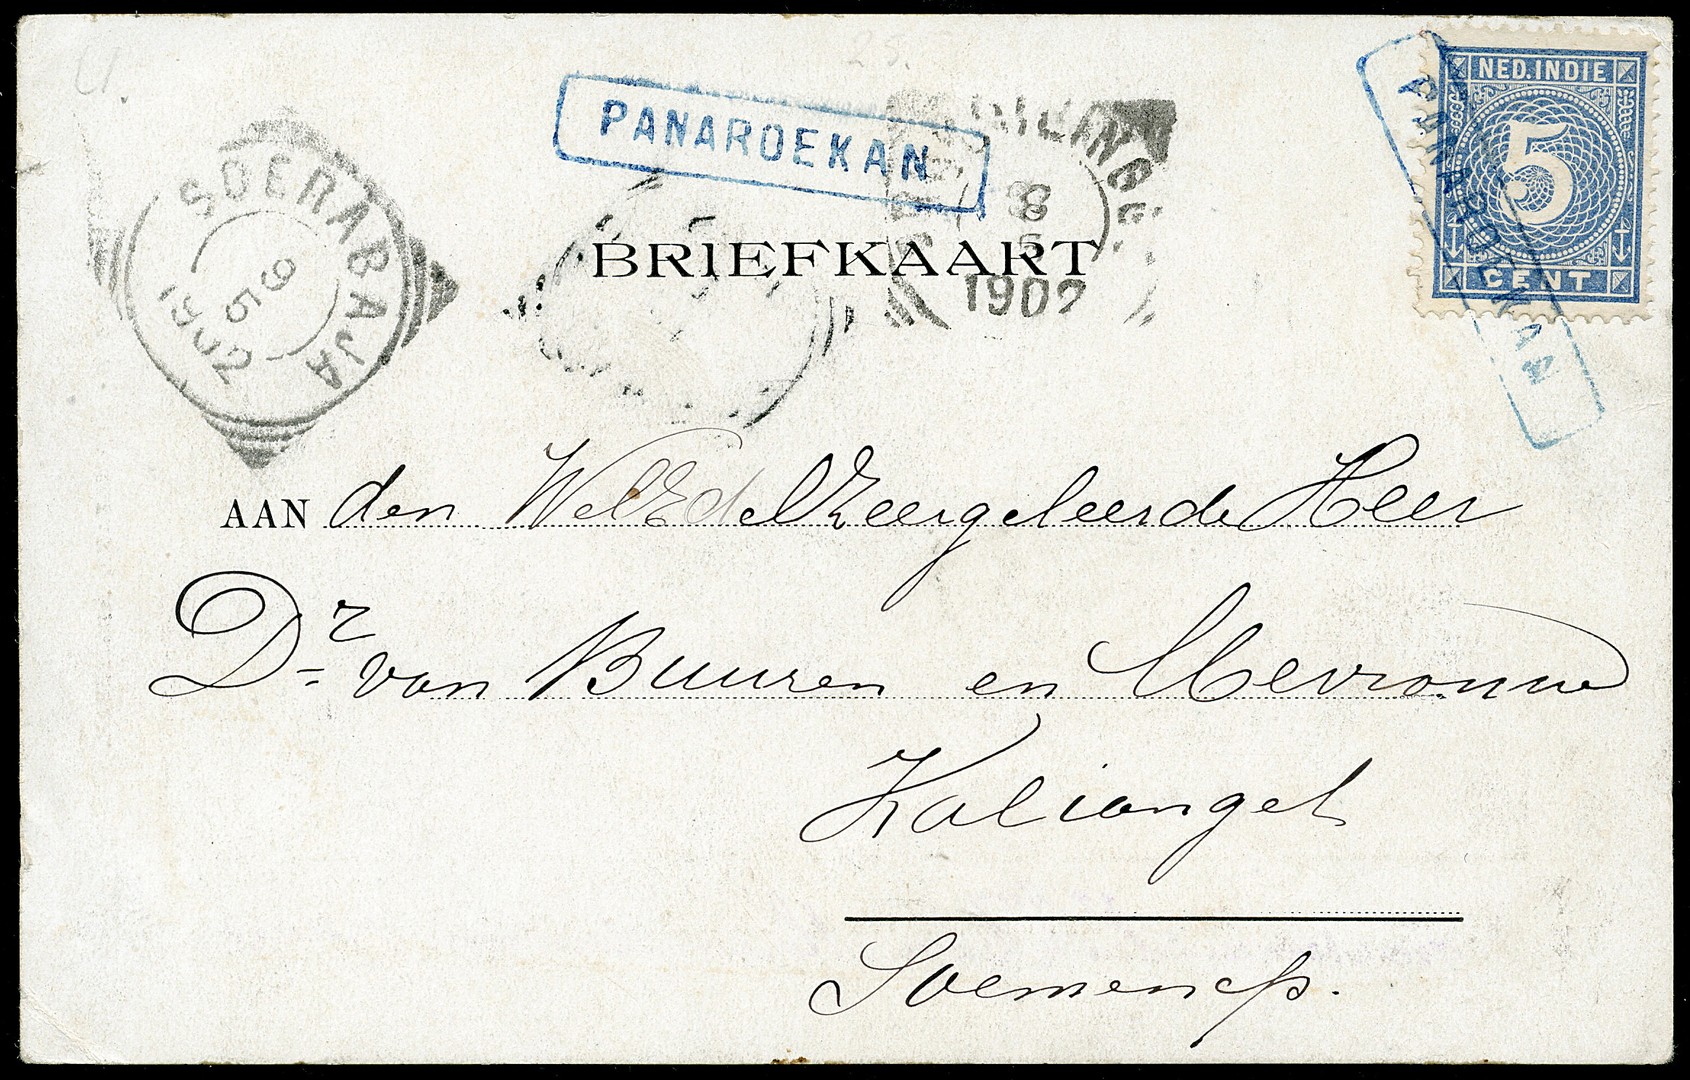 25.
PANAROEKAN
NED.INDIE
5
CENT
PANAROEKAN
SOERABAJA
9
5
1902
8
5
1902
BRIEFKAART
AAN den WelEdelZeergeleerde Heer
Dr van Buuren en Mevrouw
Kalianget
Soemenep.